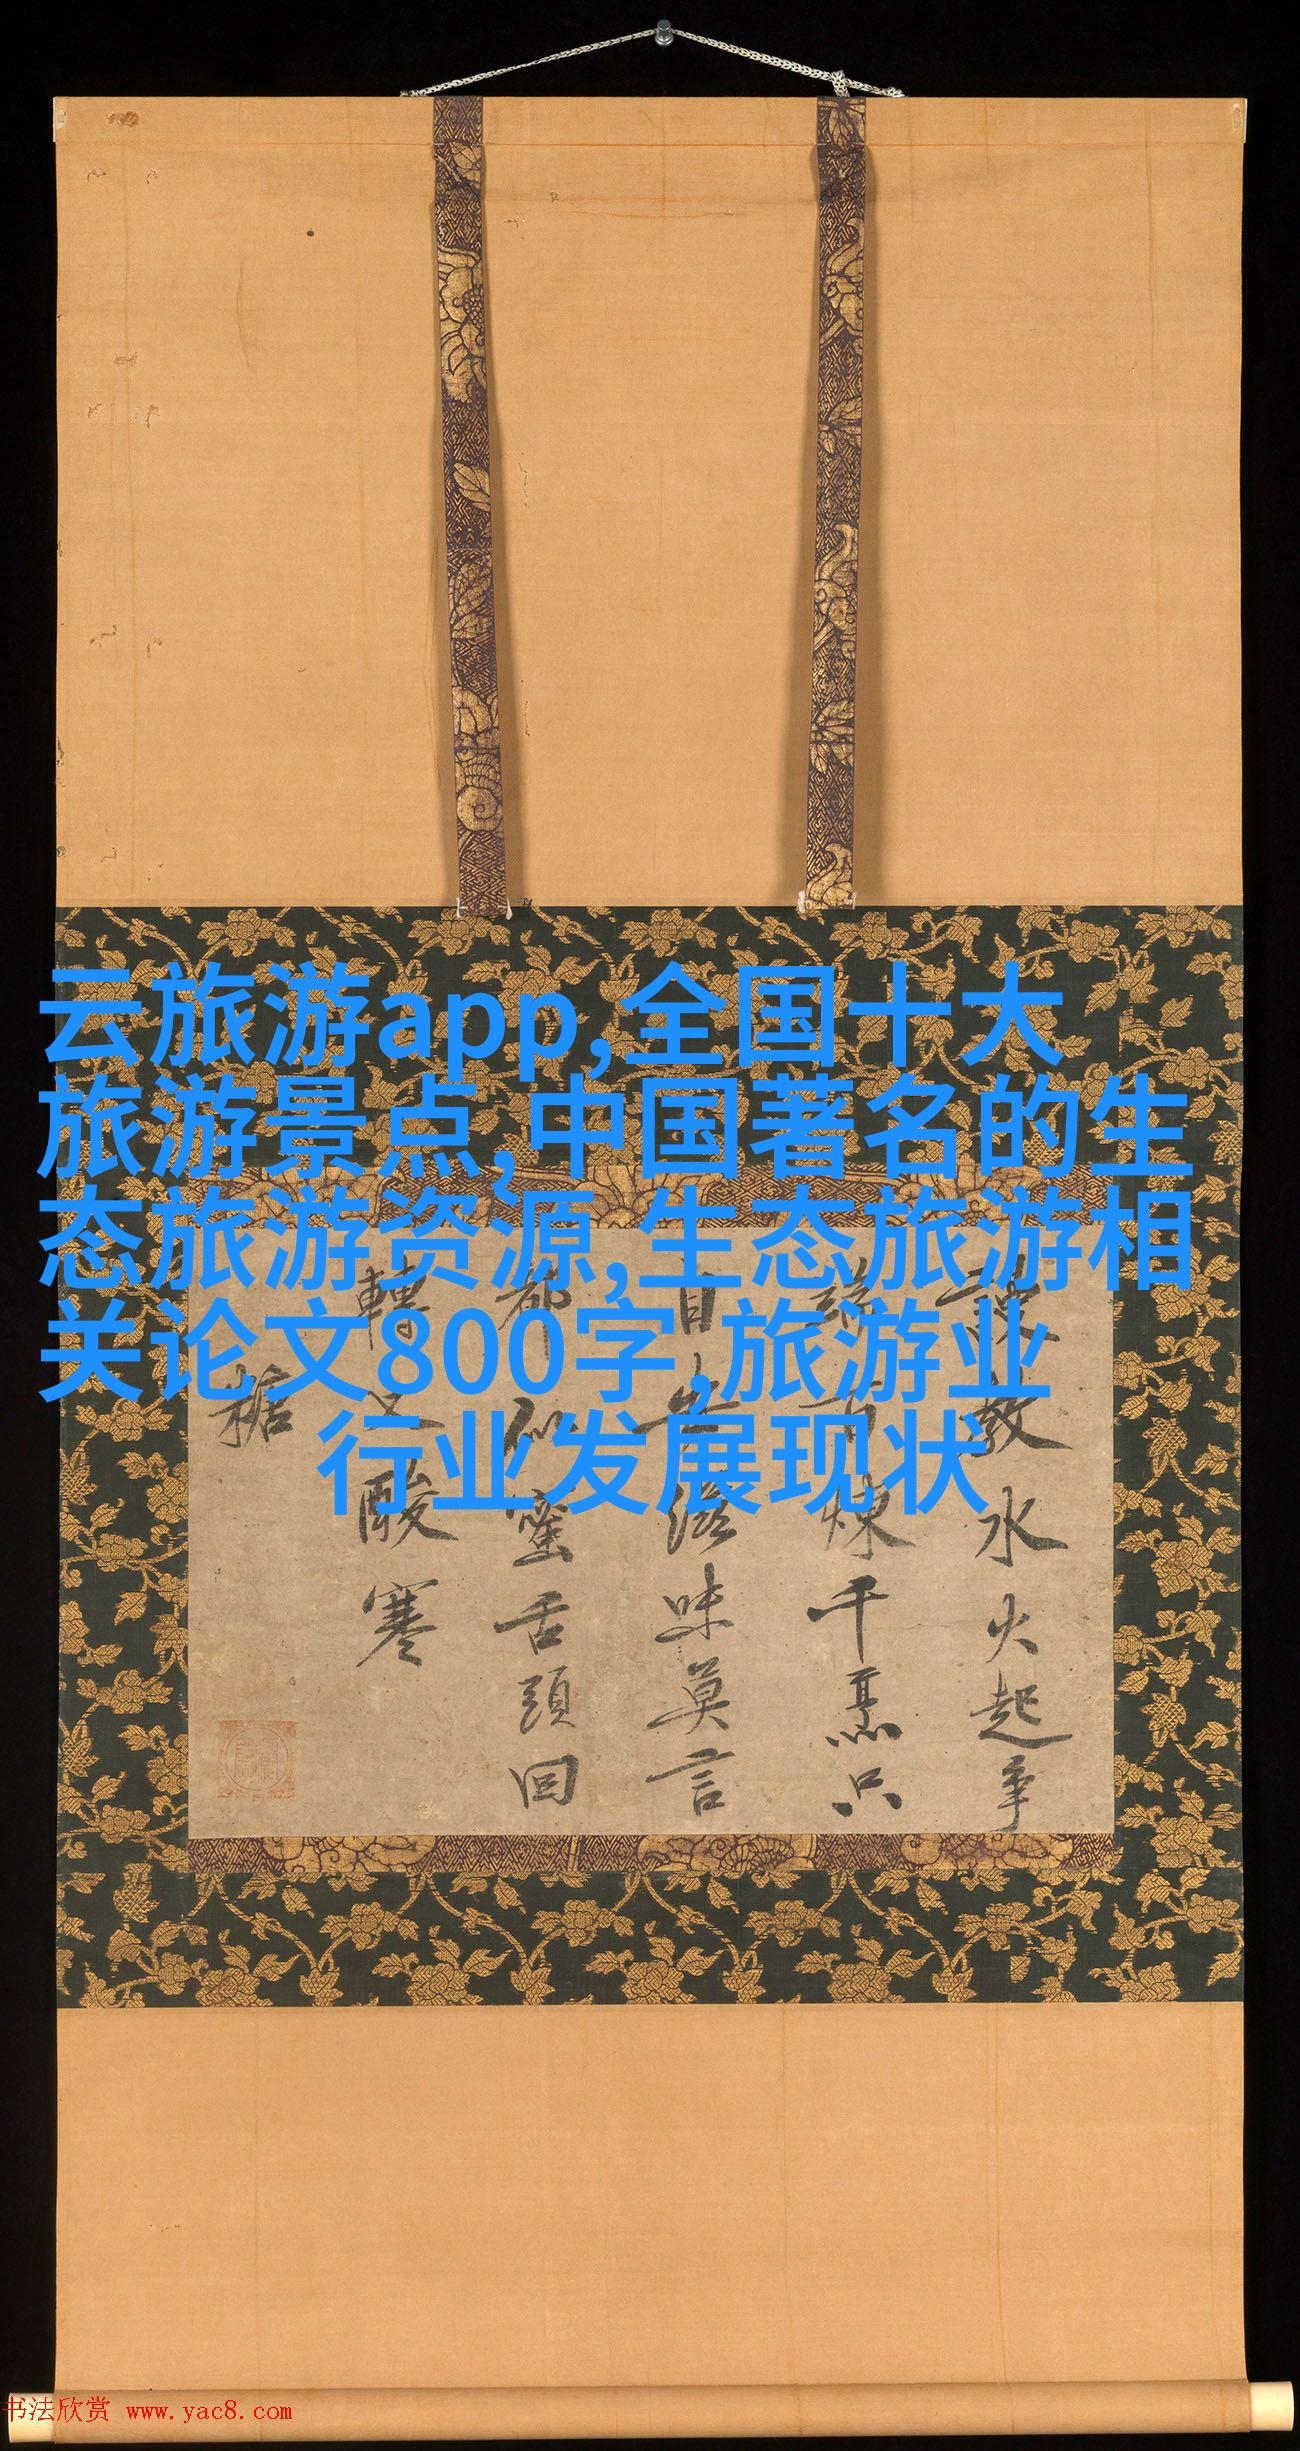 云旅游app,全国十大
旅游景点,中国著名的生
态旅游资源,生态旅游相
关论文800字,旅游业
行业发展现状
謾教水火起争
端百煉千烹只
自安滋味莫言
都似蜜舌頭回
轉又酸寒
糖
书法欣赏 www.yac8.com